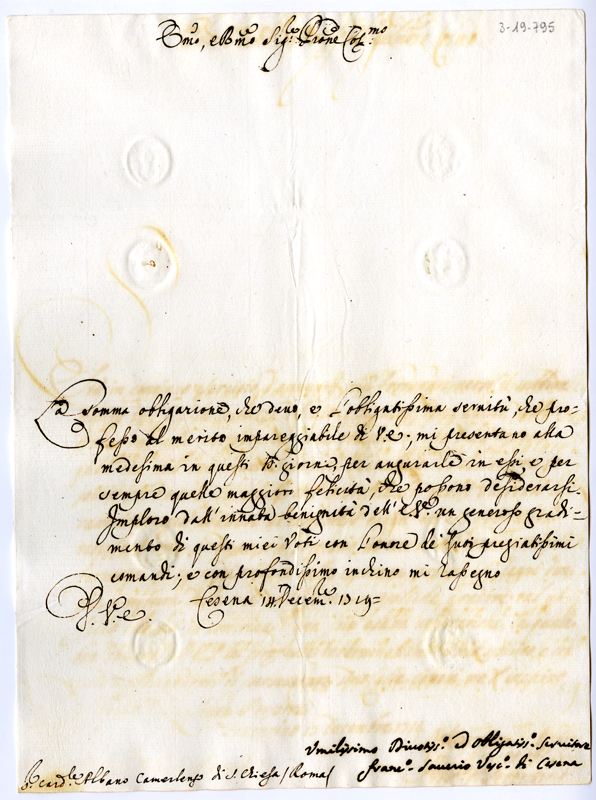 3-19-795
Emo, e Rmo Sig.r e Prone Col.mo
La somma obligazione, che devo, e l'obligatissima servitù, che pro-
fesso al merito impareggiabile di V. E., mi presentano alla
medesima in questi S. giorni, per augurarle in essi, e per
sempre quelle maggiori felicità, che possono desiderarsi.
Imploro dall' innata benignità dell' E. V. un generoso gradi-
mento di questi miei Voti con l'onore de' suoi pregiatissimi
comandi; e con profondissimo inchino mi rassegno
Di V. E. Cesena 14 Decem.e 1719=
Umilissimo Divotiss.o ed Obligatiss.o Servitore
Franc.o Saverio Vesc.o di Cesena
S.r Card.le Albano Camerlengo di S. Chiesa / Roma /